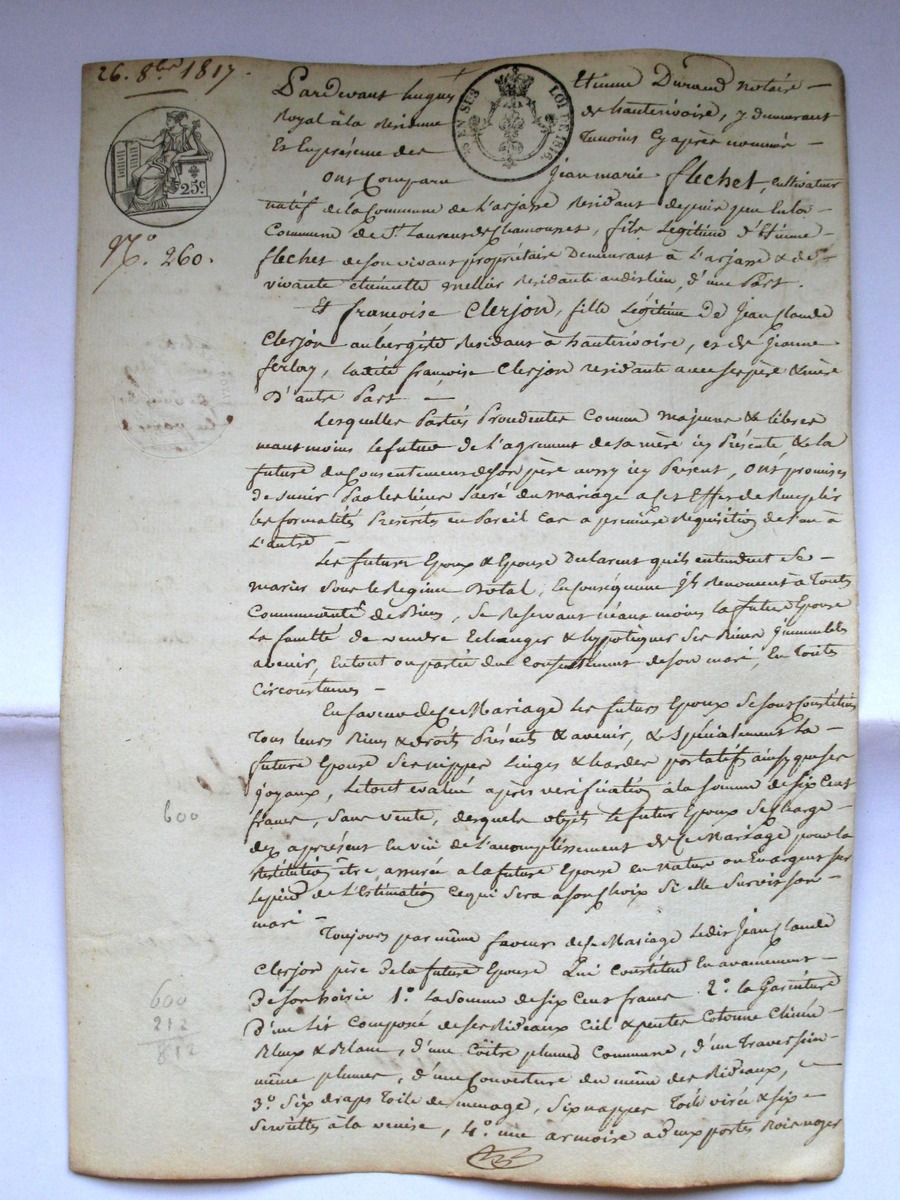 26. 8bre 1817.
Pardevant hugues Etienne Durand Notaire
Royal à la Residence de hauterivoire, y demeurant
Et En presence des Temoins Cy après nommés
EN SUS LOI DE 1816.
25c
No. 260.
Ont Comparu Jean marie flechet, Cultivateur
natif de la Commune de L'arjasse Residant depuis peu En la
Commune de St. Laurent de Chamousset, fils Legitime d'Etienne
flechet de son vivant propriétaire Demeurant à L'arjasse & de
vivante etiennette mellier Residante audit lieu, d'une Part.
Et françoise Clerjon, fille Légitime de Jean Claude
Clerjon aubergiste Residant à hauterivoire, et de Jeanne
ferlay, ladite françoise Clerjon residante avec ses père & mère
D'autre Part
Lesquelles Parties Procedentes Comme majeures & libres
neant moins le futur de L'agrement de sa mère icy Présente & la
future du Consentement de son père aussy icy Present, Ont promises
de s'unir Par les liens Sacré du mariage a Cet Effet de Remplir
les formalités Prescrites en Pareil Cas a première Requisition de l'un à
L'autre
Les futurs Epoux & Epouse Declarent qu'ils entendent Se
marier sous le Regime Dotal, En Conséquence ils Renoncent à Toute
Communauté de Biens, Se Reservant neant moins la future Epouse
La faculté de vendre Echanger & hypotequer Ses Biens immeubles
avenir, En tout ou partie du Consentement de son mari, En Toutes
Circonstances
En faveur de Ce Mariage Les futurs Epoux Se sont Constitués
Tous leurs Biens & droits Présents & avenir, & Spécialement La
future Epouse Ses nippes Linges & hardes portatifs ainsy que ses
joyaux, Le tout evalué après vérification à la Somme de Six Cent
francs, Sans vente, desquels objets le futur Epoux Se Charge
des apresent En vüe de L'accomplissement de Ce Mariage pour la
Restitution être assurée a la future Epouse en Nature ou En argent sur
Le pied de L'Estimation Ce qui Sera a Son Choix Si elle Survit Son
mari
600
Toujours par même faveur de Ce Mariage Ledit Jean Claude
Clerjon père de la future Epouse Lui Constitue En avancement
De Son hoirie 1o. La Somme de Six Cent francs 2o. la Garniture
d'un Lit Composé de Ses Rideaux Ciel & pentes Cotonne Chinée
Bleux & Blanc, d'une Coitre plumes Commune, d'un Traversin
même plumes, d'une Couverture du même des Rideaux,
3o. Six draps Toile de menage, Six nappes Toile virée & Six
Serviettes à la venise, 4o. une armoire a deux portes Bois noyer
600
212
812